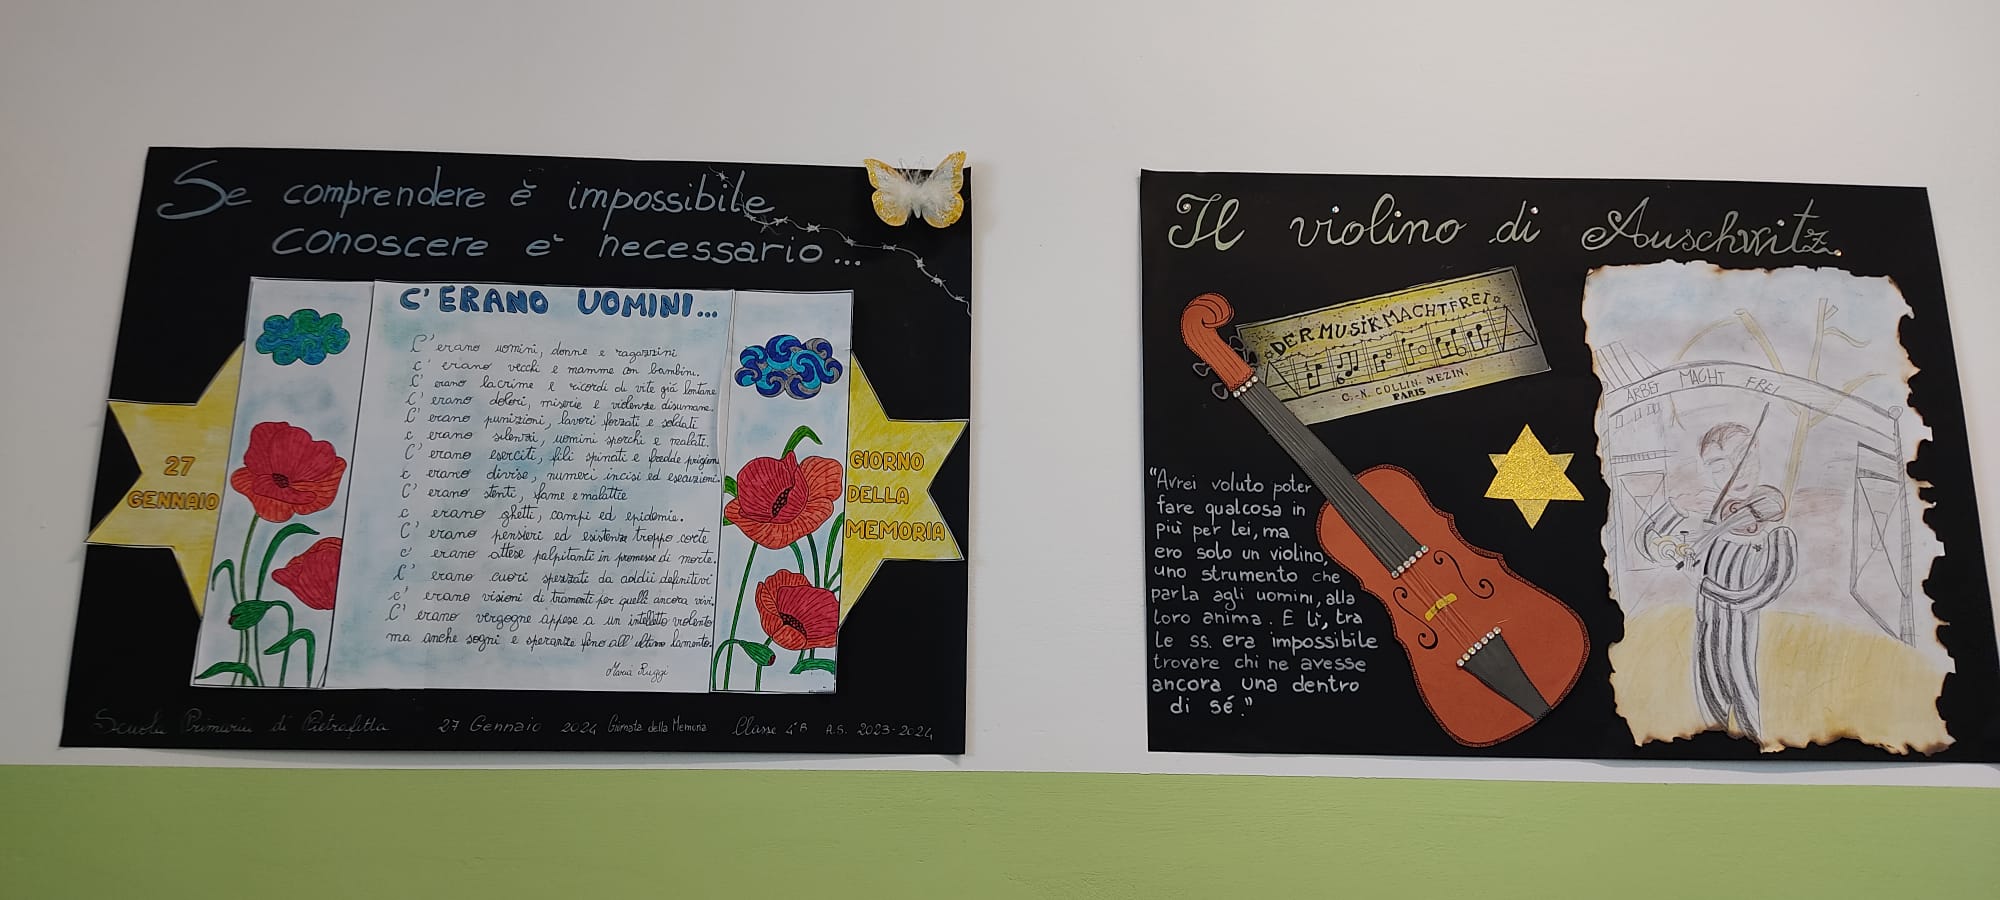 Se comprendere è impossibile
conoscere e' necessario...
C'ERANO UOMINI...
C'erano uomini, donne e ragazzini
c' erano vecchi e mamme con bambini.
C' erano lacrime e ricordi di vite già lontane
C' erano dolori, miserie e violenze disumane.
C' erano punizioni, lavori forzati e soldati
c' erano silenzi, uomini sporchi e malati.
C' erano eserciti, fili spinati e fredde prigioni
c' erano divise, numeri incisi ed esecuzioni.
C' erano stenti, fame e malattie
c' erano ghetti, campi ed epidemie.
C' erano pensieri ed esistenze troppo corte
c' erano attese palpitanti in promesse di morte.
C' erano cuori spezzati da addii definitivi
c' erano visioni di tramonti per quelli ancora vivi.
C' erano vergogne appese a un intelletto violento
ma anche sogni e speranze fino all'ultimo lamento.
Maria Ruggi
27
GENNAIO
GIORNO
DELLA
MEMORIA
Scuola Primaria di Pietrafitta 27 Gennaio 2024 Giornata della Memoria Classe 4ªB A.S. 2023-2024
Il violino di Auschwitz.
DER MUSIK MACHT FREI
C.-N. COLLIN. MEZIN.
PARIS
"Avrei voluto poter
fare qualcosa in
più per lei, ma
ero solo un violino,
uno strumento che
parla agli uomini, alla
loro anima. E lì, tra
le ss. era impossibile
trovare chi ne avesse
ancora una dentro
di sé."
ARBEIT MACHT FREI